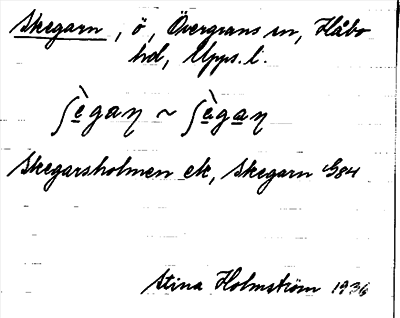 Skegarn, ö, Övergrans sn, Håbo
hd, Upps. l.
ʃègaŋ ~ ʃègaŋ
Skegarsholmen ek, Skegarn G84
Stina Holmström 1936